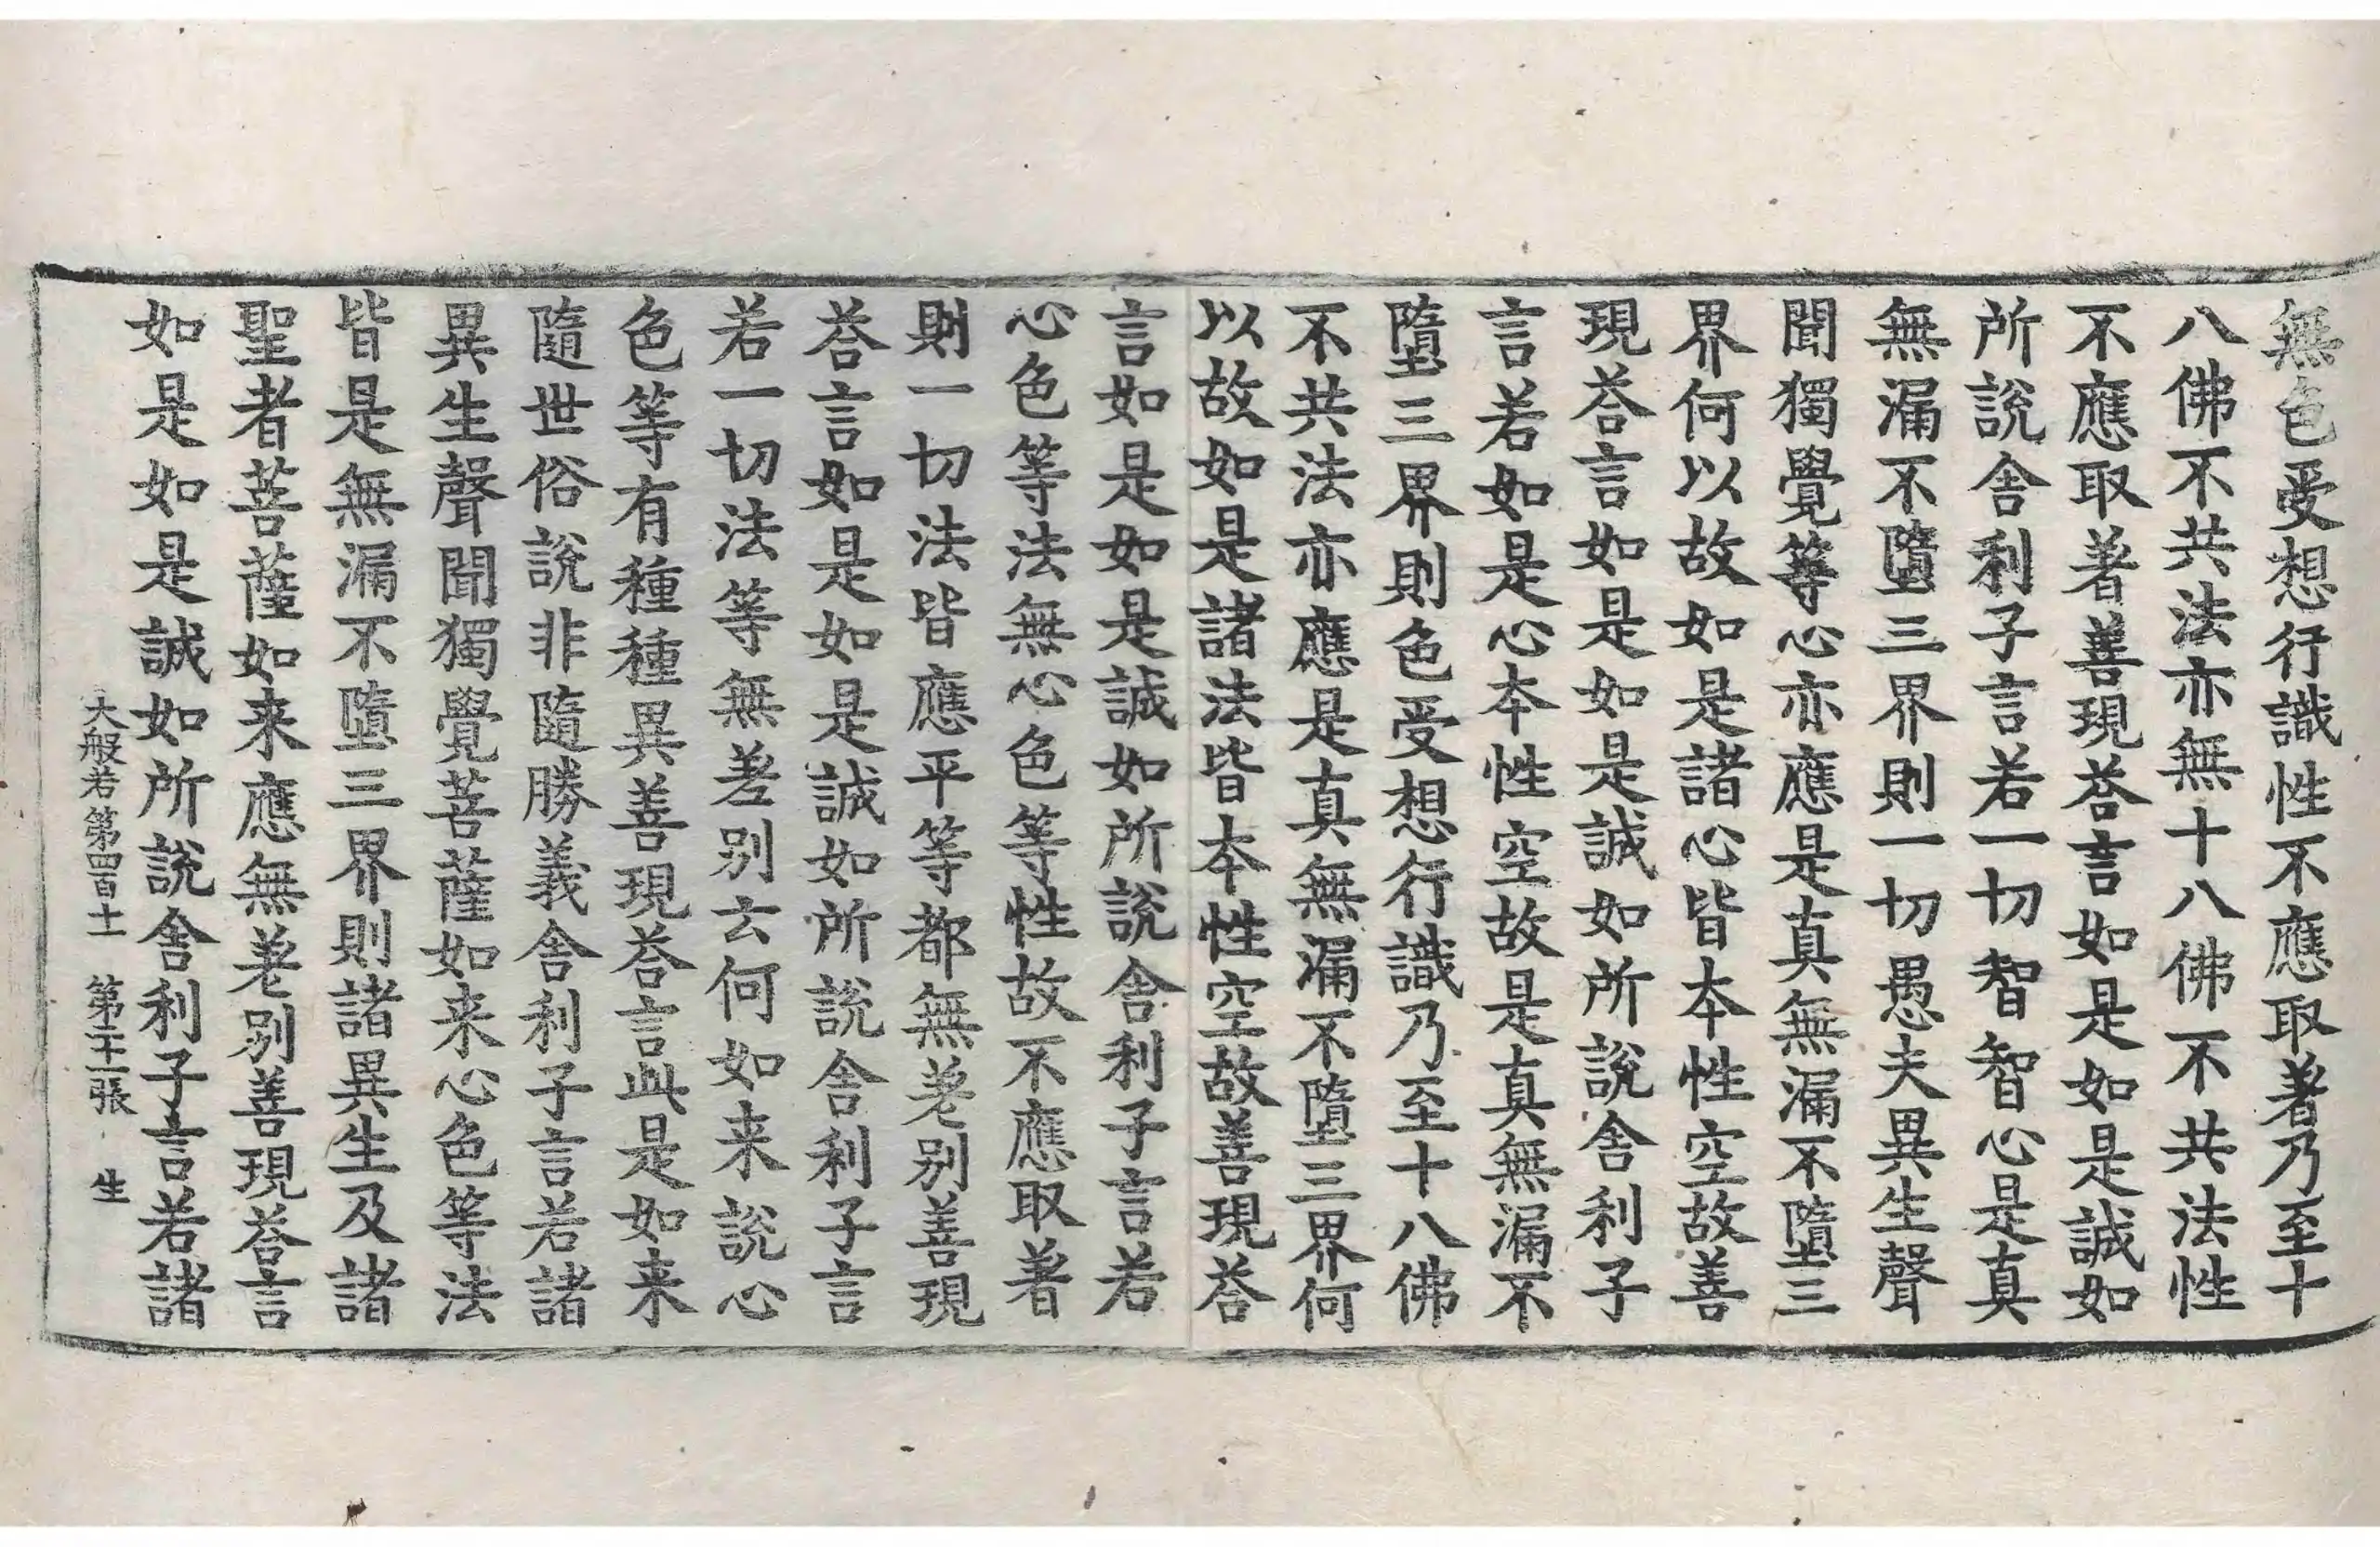 無色受想行識性不應取著乃至十
八佛不共法亦無十八佛不共法性
不應取著善現荅言如是如是誠如
所說舍利子言若一切智智心是真
無漏不墮三界則一切愚夫異生聲
聞獨覺等心亦應是真無漏不墮三
界何以故如是諸心皆本性空故善
現荅言如是如是誠如所說舍利子
言若如是心本性空故是真無漏不
墮三界則色受想行識乃至十八佛
不共法亦應是真無漏不墮三界何
以故如是諸法皆本性空故善現荅
言如是如是誠如所說舍利子言若
心色等法無心色等性故不應取著
則一切法皆應平等都無差別善現
荅言如是如是誠如所說舍利子言
若一切法等無差別云何如来說心
色等有種種異善現荅言此是如来
隨世俗說非隨勝義舍利子言若諸
異生聲聞獨覺菩薩如来心色等法
皆是無漏不墮三界則諸異生及諸
聖者菩薩如来應無差別善現荅言
如是如是誠如所說舍利子言若諸
大般若第四百十一 第二十二張 生